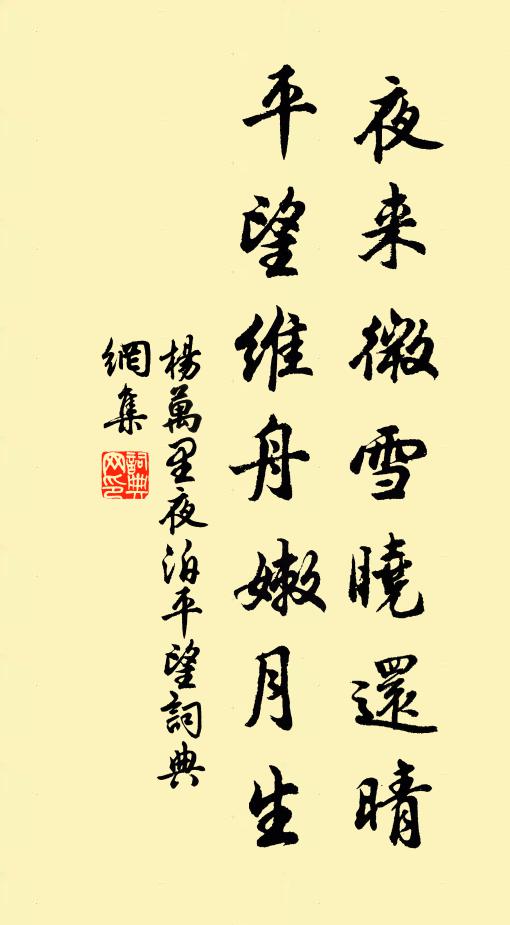 夜来微雪曉還晴
平望維舟嫩月生
楊萬里夜泊平望詞典
網集
詞典网印